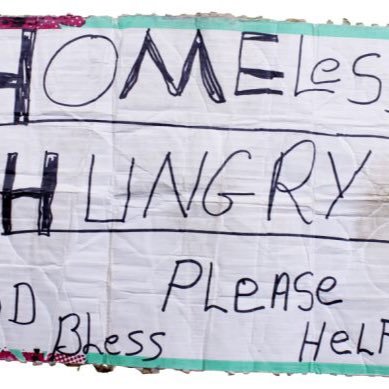 HOMELeSS
HUNGRY
PLeASe
OD BLess HeLP